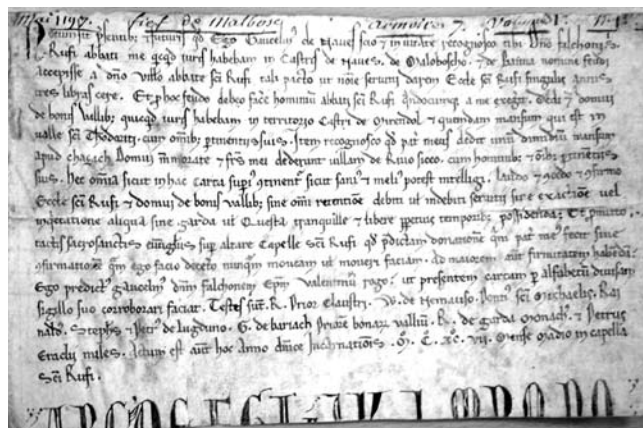 Mai 1197. fief de Malbosc armoire 7. Volume 1.
Notum sit psentib; & futuris qd Ego Gaucelin' de Naues scio & in ueritate recognosco tibi Dno falchoni s.
Rufi abbati me qcqd iuris habebam in Castris de Naues. de Maloboscho. & de latina nomine feudi
accepisse a dno Willo abbate sci Rufi tali pacto ut noie seruitii darem Eccle sci Rufi singulis annis
tres libras cere. Et p hoc feudo debeo facere hominium abbati sci Rufi qndocumq; a me exegerit. Dedit & domui
de bonis uallib; quicqd iuris habebam in territorio Castri de Mirendol & quendam mansum qui est in
ualle sci Theodoriti. cum omib; ptinentiis suis. Item recognosco qd pat meus dedit unum dimidium mansum
apud Domui memorate & frs mei dederunt uillam de Riuo sicco. cum hominib; & omib; ptinentiis
suis. Hec omia sicut in hac carta supius continent sicut sanius & melius potest intelligi. laudo & concedo & confirmo
Eccle sci Rufi & domui de bonis uallib; sine omi retentione debiti ut indebiti seruitii siue exactione uel
inquietatione aliqua sine garda ut Questa tranquille & libere perpetuis temporib; possidenda; Et pmitto
tactis sacrosanctis euangliis sup altare Capelle sci Rufi qd pdictam donationem qm pat meus fecit siue
confirmatione qm ego facio de cetero nunqm moueam ut moueri faciam. Ad maiorem aut firmitatem habendam
Ego predict' gaucelin' dnm falchonem Epm Valentinum rogo. ut presentem cartam p alfabetum diuisam
sigillo suo corroborari faciat. Testes sut. R. Prior Claustri. W. de Pontius sci Michaelis. Rai
naldus. Stephs & Petr' de lugduno. G. de bariach Prior bonarum uallium. R. de garda monach'. & Petrus
Eraclii miles. Actum est aut hoc Anno dnice Incarnationis. M. C. XC. VII. Mense Madio in capella
sci Rufi.
ABCDEFGHIKLMNOPQ